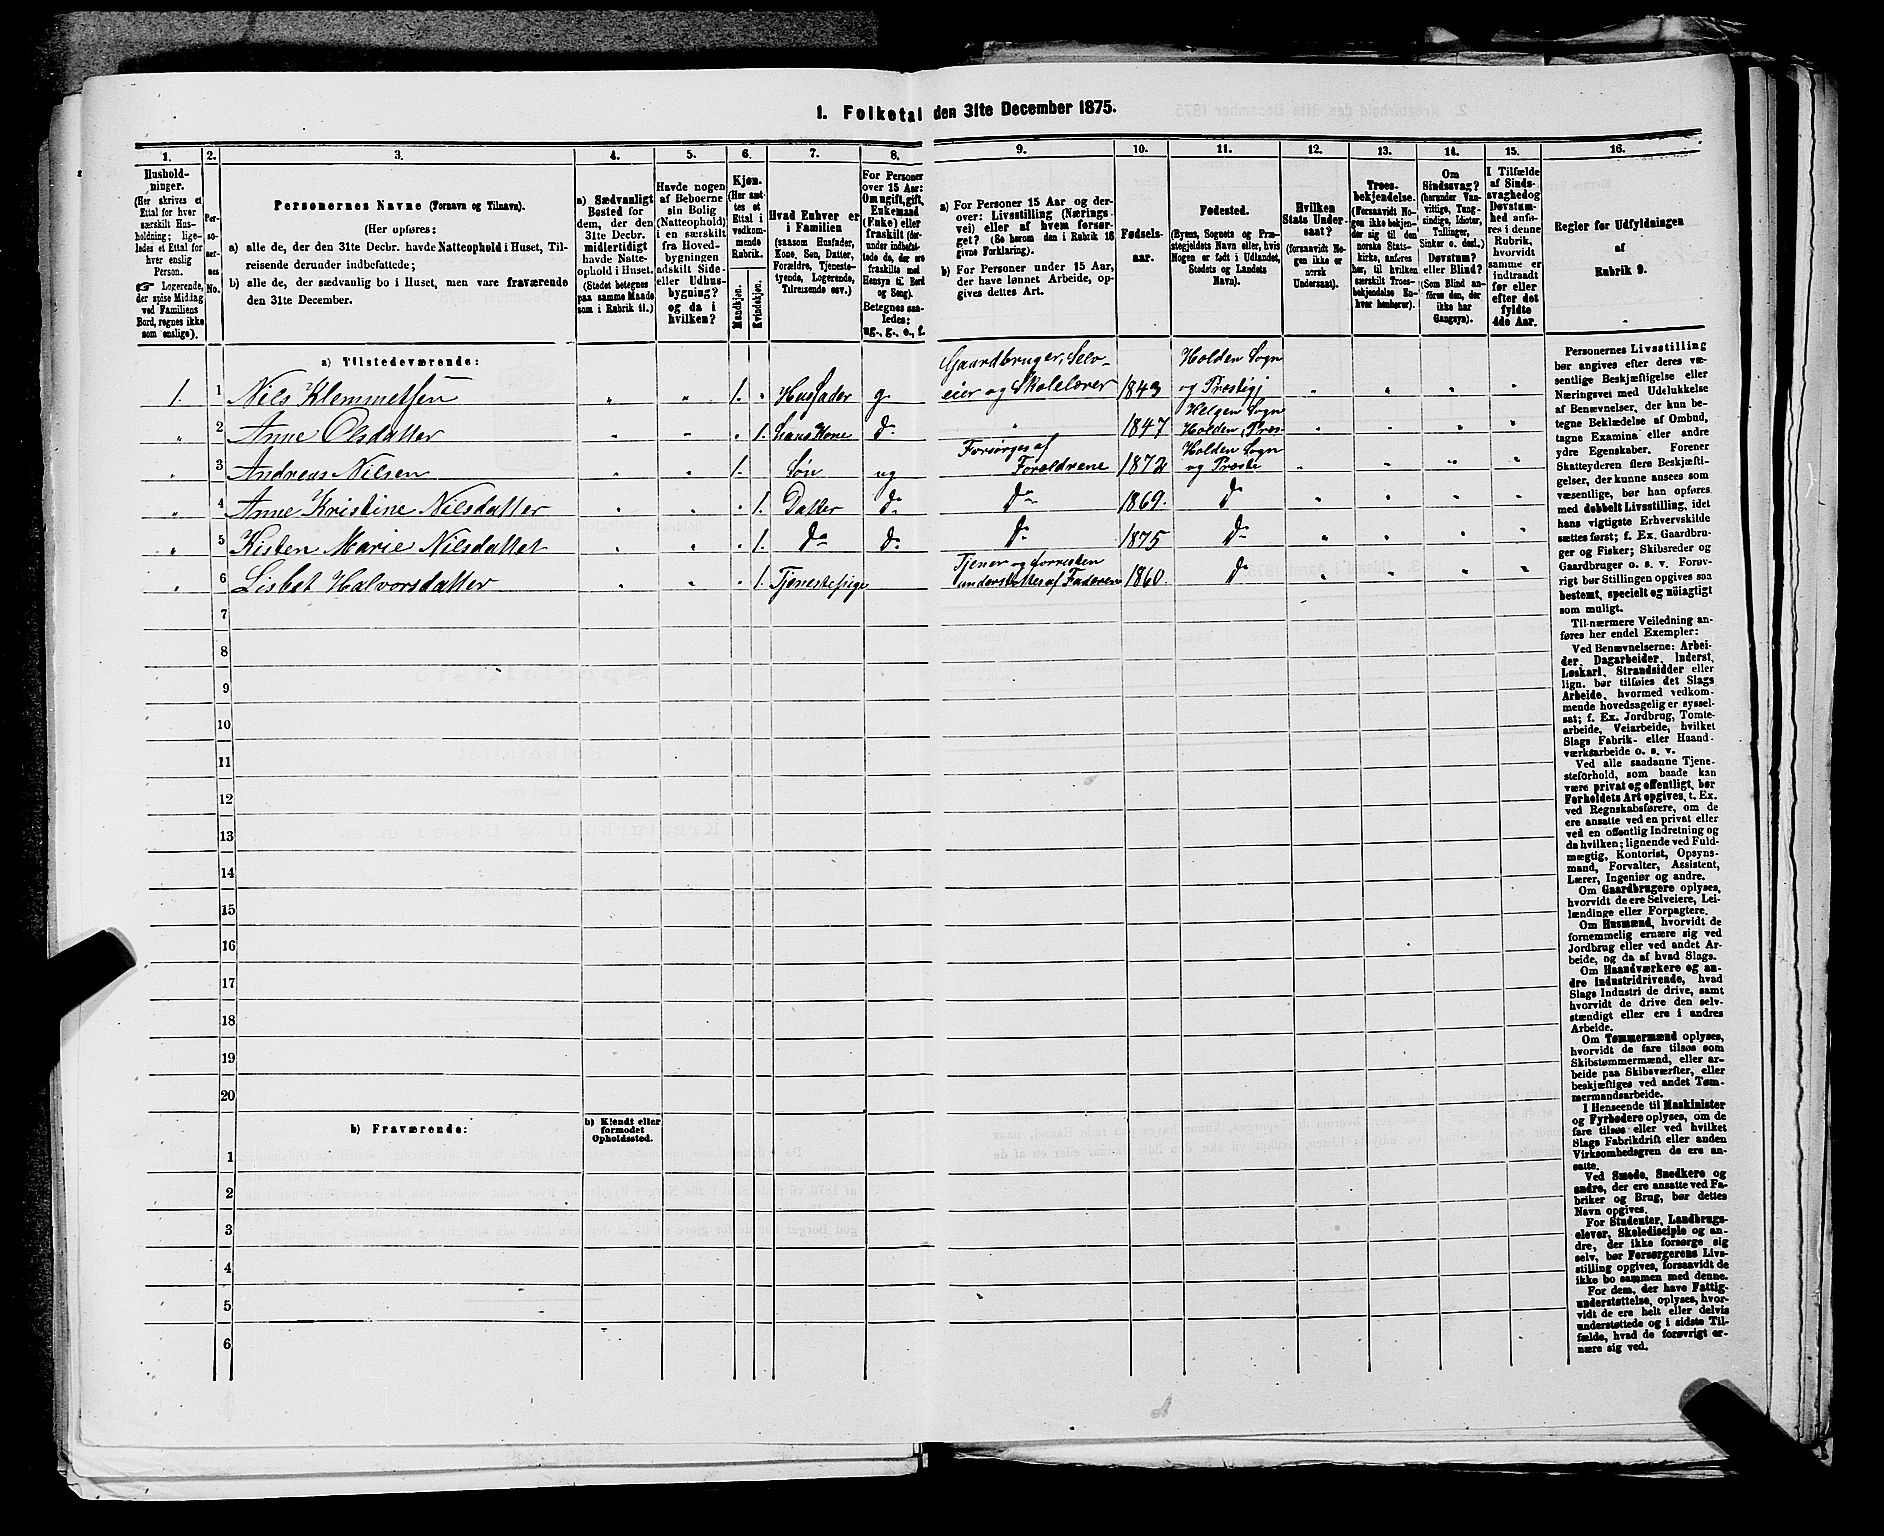 1. Folketal den 31te December 1875.
1. 2. 3. 4. 5. 6. 7. 8. 9. 10. 11. 12. 13. 14. 15. 16.
Hushold-
ninger.
(Her skrives et
Ettal for hver
særskilt Hus-
holdning; lige-
ledes et Ettal for
hver enslig
Person.
☞ Logerende,
der spise Middag
ved Familiens
Bord, regnes ikke
som enslige).
Per-
so-
ner-
nes
No.
Personernes Navne (Fornavn og Tilnavn).
(Her opføres:
a) alle de, der den 31te Decbr. havde Natteophold i Huset, Til-
reisende derunder indbefattede;
b) alle de, der sædvanlig bo i Huset, men vare fraværende
den 31te December.
a) Sædvanligt
Bosted for
dem, der den
31te Decbr.
midlertidigt
havde Natte-
ophold i Huset.
(Stedet betegnes
paa samme Maade
som i Rubrik 11.)
Havde nogen
af Beboerne
sin Bolig
(Natteophold)
i en særskilt
fra Hoved-
bygningen
adskilt Side-
eller Udhus-
bygning? og da i
hvilken?
Kjøn.
(Her sæt-
tes et
Ettal i
vedkom-
mende
Rubrik.
Mandkjøn.
Kvindekjøn.
Hvad Enhver er
i Familien
(saasom Husfader,
Kone, Søn, Datter,
Forældre, Tjeneste-
tyende, Logerende,
Tilreisende osv.)
For Personer
over 15 Aar:
Om ugift, gift,
Enkemand
(Enke) eller
fraskilt (der-
under indbefat-
tede de, der ere
fraskilte med
Hensyn til Bord
og Seng).
Betegnes saa-
ledes:
ug., g., e., f.
a) For Personer 15 Aar og der-
over: Livsstilling (Nærings-
vei) eller af hvem forsør-
get? (Se herom den i Rubrik 16
givne Forklaring).
b) For Personer under 15 Aar,
der have lønnet Arbeide, op-
gives dettes Art.
Fødsels-
aar.
Fødested.
(Byens, Sognets og Præ-
stegjeldets Navn eller, hvis
Nogen er født i Udlandet,
Stedets og Landets
Navn).
Hvilken
Stats Under-
saat?
(forsaavidt No-
gen ikke er
norsk
Undersaat).
Troes-
bekjendelse.
(Forsaavidt No-
gen ikke bekjen-
der sig til den
norske Stats-
kirke, anføres
her, til hvilken
særskilt Troes-
bekjendelse En-
hver henhører).
Om
Sindssvag?
(herunder Van-
vittige, Tung-
sindige, Idioter,
Tullinger,
Sinker o. desl.)
Døvstum?
eller Blind?
(Som Blind an-
føres den, der
ikke har
Gangsyn).
I Tilfælde
af Sinds-
svaghed og
Døvstum-
hed anfø-
res i denne
Rubrik,
hvorvidt
samme er
indtraadt
før eller
efter det
fyldte
4de Aar.
Regler for Udfyldningen
af
Rubrik 9.
a) Tilstedeværende:
Gaardbruger, Selv- Holden Sogn
1. 1 Nils Klemmetsen „ „ 1. „ Husfader g. eier og Skolelærer 1843 og Prestigj „ „ „ „
Helgen Sogn
„ 2 Anne Olsdatter „ „ „ 1. hans Kone d. „ 1847 Holden, Pres- „ „ „ „
Forsørges af Holden Sogn
„ 3 Andreas Nilsen „ „ 1. „ Søn ug Forældrene 1872 og Preste „ „ „ „
„ 4 Anne Kristine Nilsdatter „ „ „ 1. Datter do do 1869. do „ „ „ „
„ 5 Kisten Marie Nilsdatter „ „ „ 1. do do do 1875 do „ „ „ „
Tjener og forresten
„ 6 Lisbet Halvorsdatter „ „ „ 1. Tjenestepige understøttes af Faderen 1860. do „ „ „ „
7
8
9
10
11
12
13
14
15
16
17
18
19
20
b) Fraværende:
b) Kjendt eller
formodet
Opholdssted.
1
2
3
4
5
6
Personernes Livsstilling
bør angives efter deres væ-
sentlige Beskjæftigelse eller
Næringsvei med Udelukkelse
af Benævnelser, der kun be-
tegne Beklædelse af Ombud,
tagne Examina eller andre
ydre Egenskaber. Forener
Skatteyderen flere Beskjæfti-
gelser, der kunne ansees som
væsentlige, bør han opføres
med dobbelt Livsstilling, idet
hans vigtigste Erhvervskilde
sættes først; f. Ex. Gaardbru-
ger og Fisker; Skibsreder og
Gaardbruger o. s. v. Forøv-
rigt bør Stillingen opgives saa
bestemt, specielt og nöiagtigt
som muligt.
Til nærmere Veiledning an-
føres her endel Exempler:
Ved Benævnelserne: Arbei-
der, Dagarbeider, Inderst,
Løskarl, Strandsidder eller
lign. bør tilføies det Slags
Arbeide, hvormed vedkom-
mende hovedsagelig er syssel-
sat; f. Ex. Jordbrug, Tomte-
arbeide, Veiarbeide, hvilket
Slags Fabrik- eller Haand-
værksarbeide o. s. v.
Ved alle saadanne Tjene-
steforhold, som baade kan
være privat og offentligt, bør
Forholdets Art opgives, t. Ex.
ved Regnskabsførere, om de
ere ansatte ved en privat eller
ved en offentlig Indretning og
da hvilken; lignende ved Fuld-
mægtig, Kontorist, Opsyns-
mand, Forvalter, Assistent,
Lærer, Ingeniør og andre.
Om Gaardbrugere oplyses,
hvorvidt de ere Selveiere, Lei-
lændinge eller Forpagtere.
Om Husmænd, hvorvidt de
fornemmelig ernære sig ved
Jordbrug eller ved andet Ar-
beide, og da af hvad Slags.
Om Haandværkere og an-
dre Industridrivende, hvad
Slags Industri de drive, samt
hvorvidt de drive den selv-
stændigt eller ere i andres
Arbeide.
Om Tømmermænd oplyses,
hvorvidt de fare tilsøs som
Skibstømmermænd, eller ar-
beide paa Skibsværfter, eller
beskjæftiges ved andet Tøm-
mermandsarbeide.
I Henseende til Maskinister
og Fyrbødere oplyses, om de
fare tilsøs eller ved hvilket
Slags Fabrikdrift eller anden
Virksomhedsgren de ere an-
satte.
Ved Smede, Snedkere og
andre, der ere ansatte ved Fa-
briker og Brug, bør dettes
Navn opgives.
For Studenter, Landbrugs-
elever, Skoledisciple og an-
dre, der ikke forsørge sig
selv, bør Forsørgerens Livs-
stilling opgives, forsaavidt de
ikke bo sammen med denne.
For dem, der have Fattig-
understøttelse, oplyses, hvor-
vidt de ere helt eller delvis
understøttede og i sidste Til-
fælde, hvad de forøvrigt er-
nære sig ved.